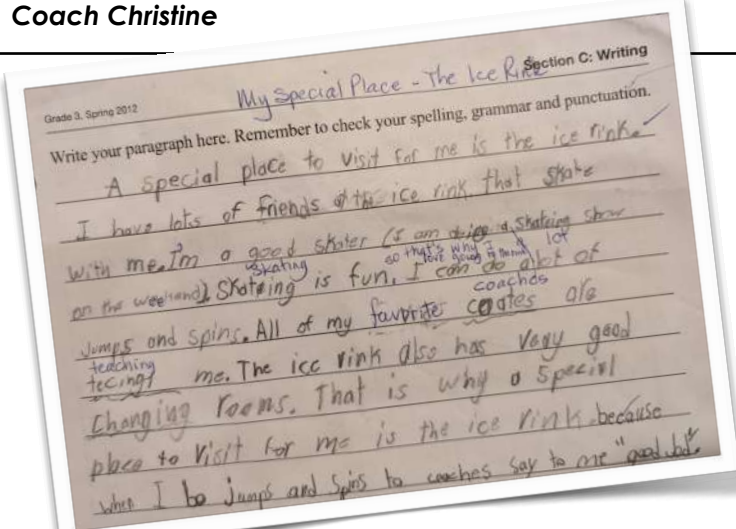 Coach Christine
Grade 3, Spring 2012
My Special Place - The Ice Rink
Section C: Writing
Write your paragraph here. Remember to check your spelling, grammar and punctuation.
A special place to visit for me is the ice rink.
I have lots of friends at the ice rink that skate
with me. I'm a good skater (I am doing a skateing show
so that's why I love going to them lot
on the weekend). Skating Skateing is fun. I can do alot of
coaches
jumps and spins. All of my favorite coates are
teaching
tecing me. The ice rink also has very good
changing rooms. That is why a special
place to visit for me is the ice rink because
when I be jumps and spins to coaches say to me "good Job".